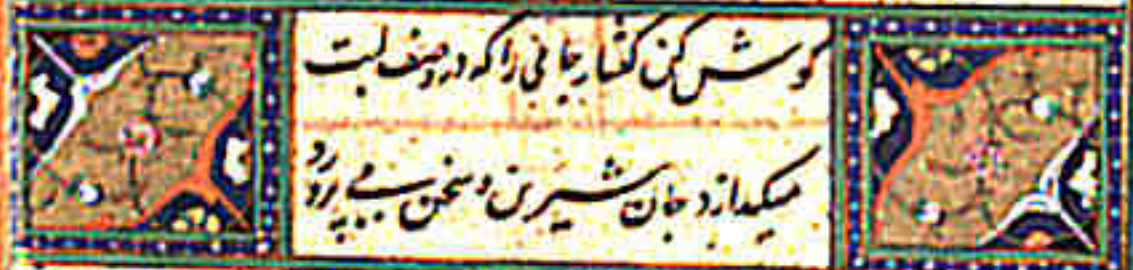 گوش کن گفتار جامی را که در وصف لبت
میگدازد جان شیرین و سخن می پرورد